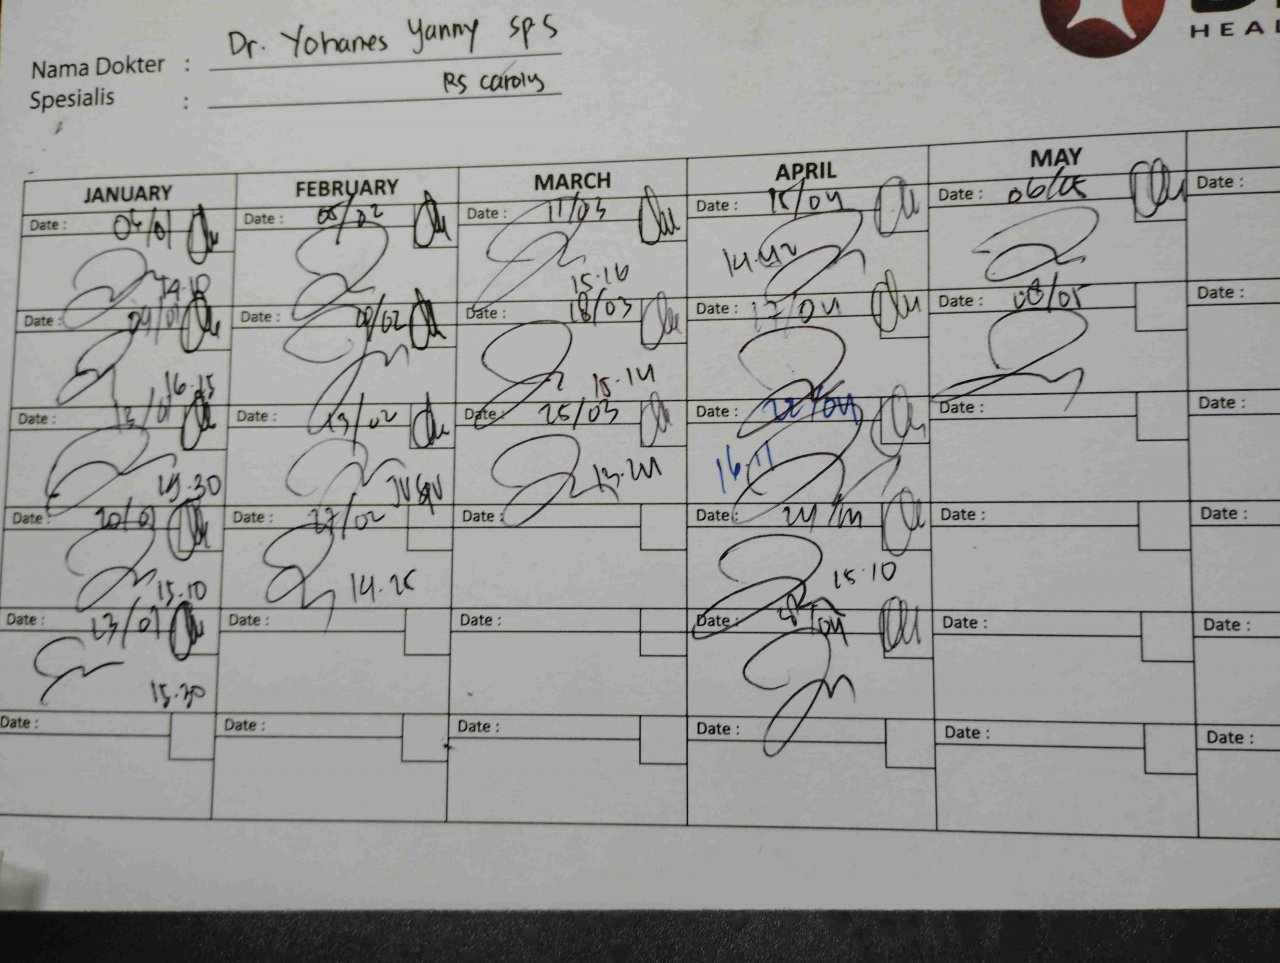 Dr. Yohanes Yanny SpS
Nama Dokter :
RS Carolus
Spesialis :
HEAL
JANUARY FEBRUARY MARCH APRIL MAY
Date : 06/01 Date : 05/02 Date : 11/03 Date : 15/04 Date : 06/05 Date :
14.10 15.16 14.42
Date : 09/01 Date : 09/02 Date : 18/03 Date : 17/04 Date : 08/05 Date :
16.15 15.14
Date : 13/01 Date : 13/02 Date : 25/03 Date : 22/04 Date : Date :
15.30 13.24 16.11
Date : 20/01 Date : 27/02 Date : Date : 24/04 Date : Date :
15.10 14.25 15.10
Date : 23/01 Date : Date : Date : /04 Date : Date :
15.30
Date : Date : Date : Date : Date : Date :